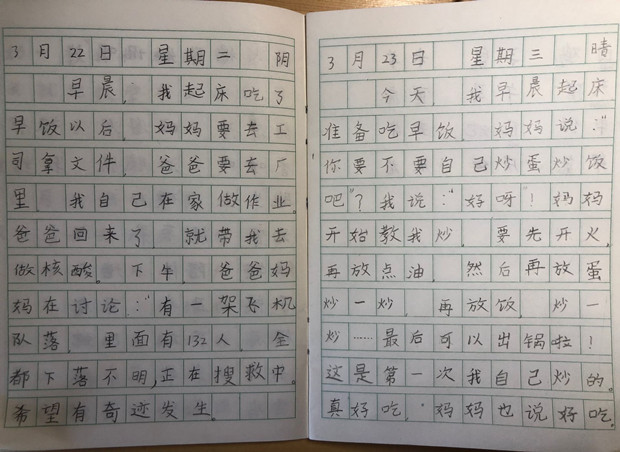 3月22日 星期二 阴
早晨，我起床吃了
早饭以后，妈妈要去工
司拿文件，爸爸要去厂
里，我自己在家做作业。
爸爸回来了，就带我去
做核酸。下午，爸爸妈
妈在讨论：“有一架飞机
队落，里面有132人，全
都下落不明，正在搜救中。
希望有奇迹发生。
3月23日 星期三 晴
今天，我早晨起床
准备吃早饭，妈妈说：“
你要不要自己炒蛋炒饭
吧”？我说：“好呀！妈妈
开始教我炒，要先开火，
再放点油，然后再放蛋
炒一炒，再放饭，炒一
炒……最后可以出锅啦！
这是第一次我自己炒的，
真好吃，妈妈也说好吃。